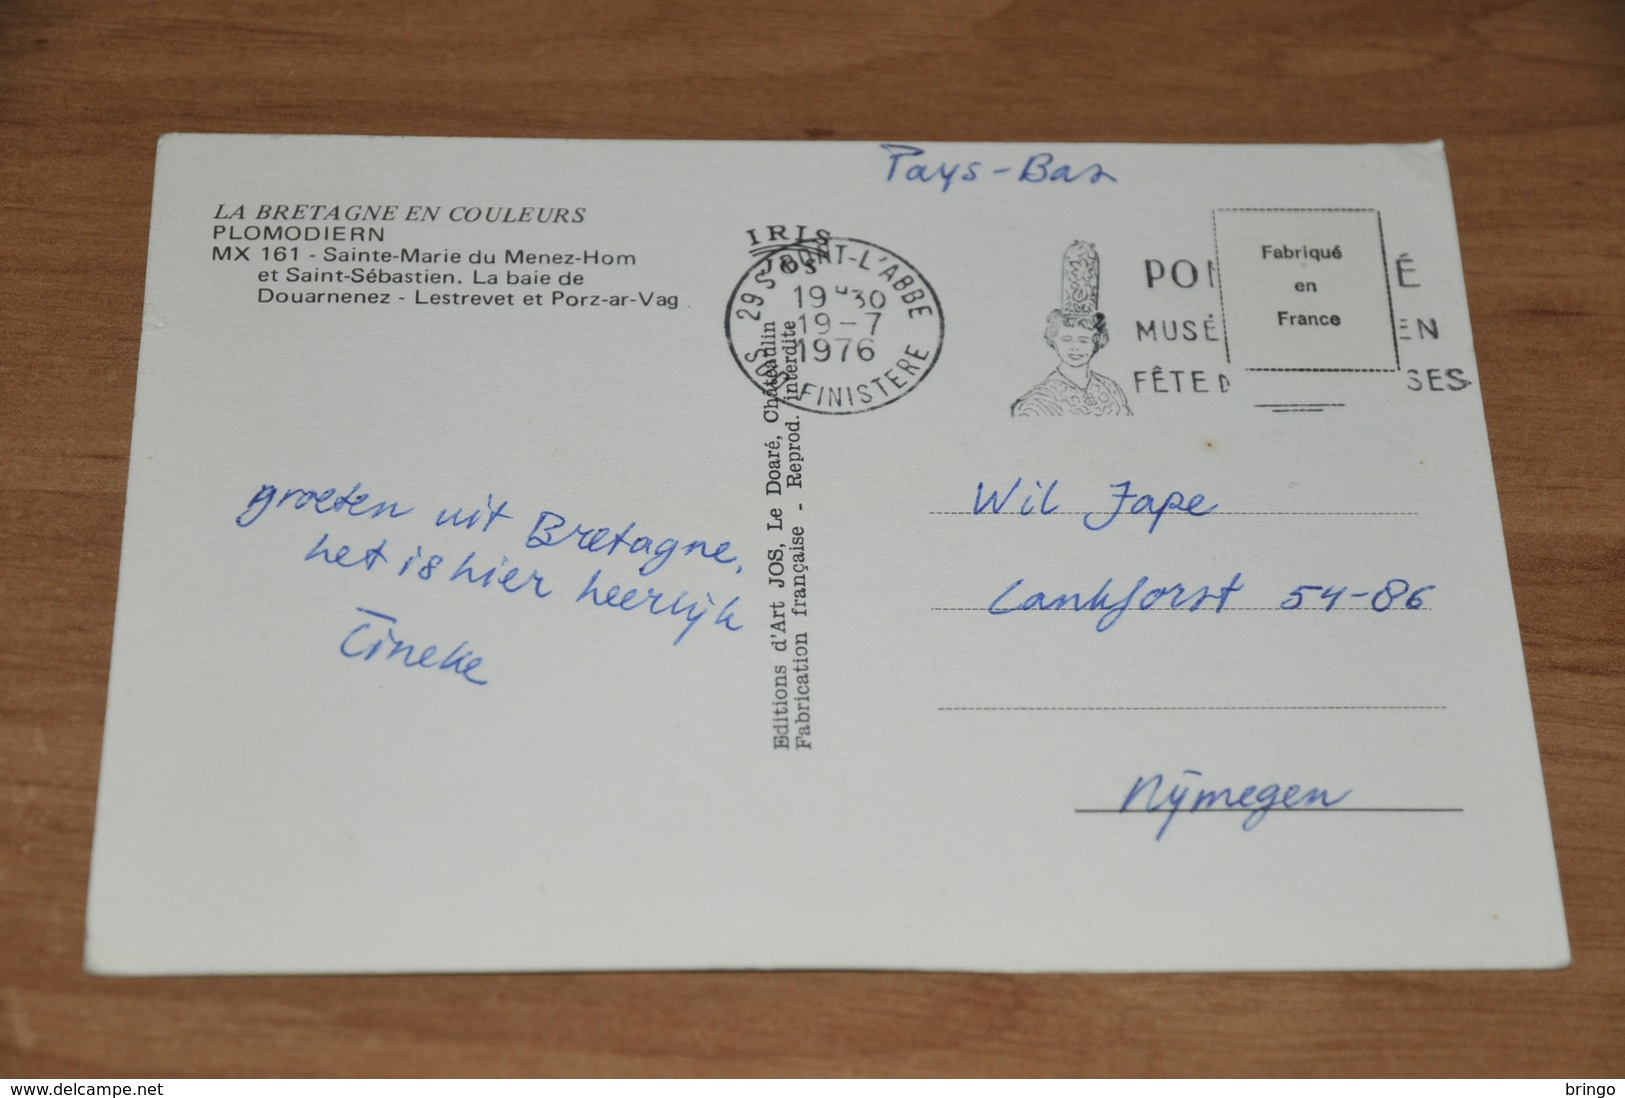 Pays-Bas
LA BRETAGNE EN COULEURS
PLOMODIERN
MX 161 - Sainte-Marie du Menez-Hom
et Saint-Sébastien. La baie de
Douarnenez - Lestrevet et Porz-ar-Vag
groeten uit Bretagne,
het is hier heerlijk
Tineke
IRIS
JOS
29 S PONT-L'ABBE
19H30
19-7
1976
FINISTERE
Editions d'Art JOS, Le Doaré, Châteaulin
Fabrication française - Reprod. interdite
PO
É
MUSÉ
EN
FÊTE D
SES
Fabriqué
en
France
Wil Jape
Lankforst 54-86
Nijmegen
delcampe.net
bringo